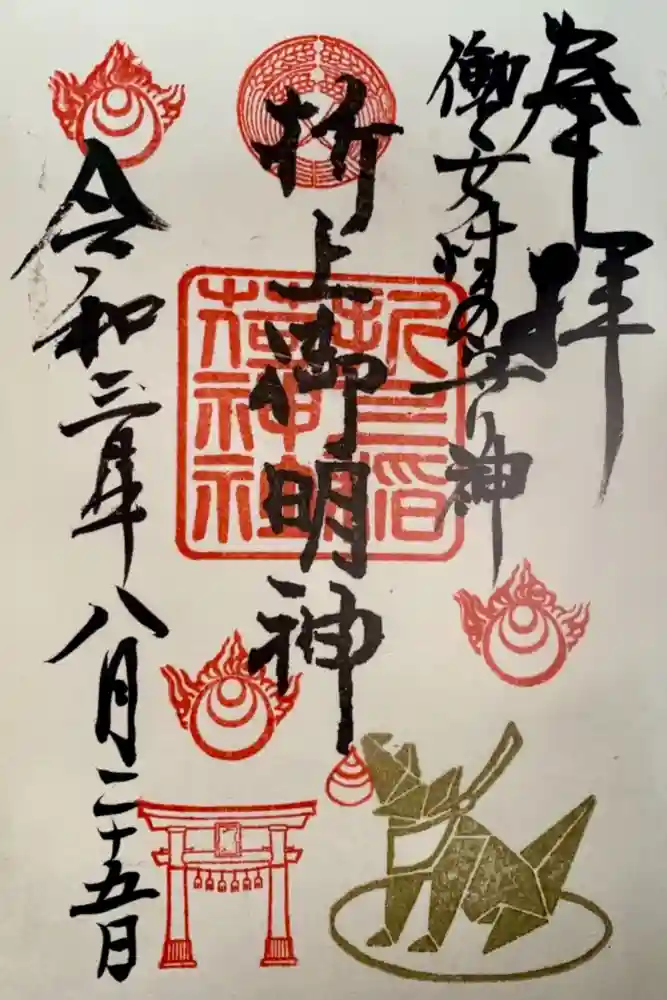 奉拝
働く女性の守り神
折上御明神
折上稲
荷神社
令和三年八月二十五日